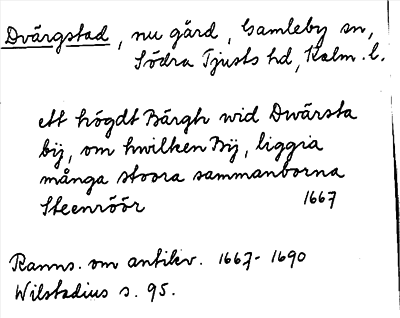 Dvärgstad, nu gård, Gamleby sn,
Södra Tjusts hd, Kalm. l.
ett högdt Bärgh wid Dwärsta
bij, om hwilken Bij, liggia
många stoora sammanborna
Steenröör 1667
Ranns. om antikv. 1667-1690
Wilstadius s. 95.